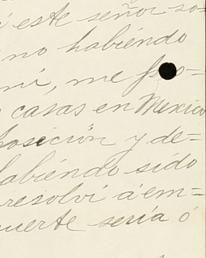 este señor so-
no habiendo
mi, me
casas en Mexico
posición y de-
habiendo sido
resolví a em=
uerte seria ó